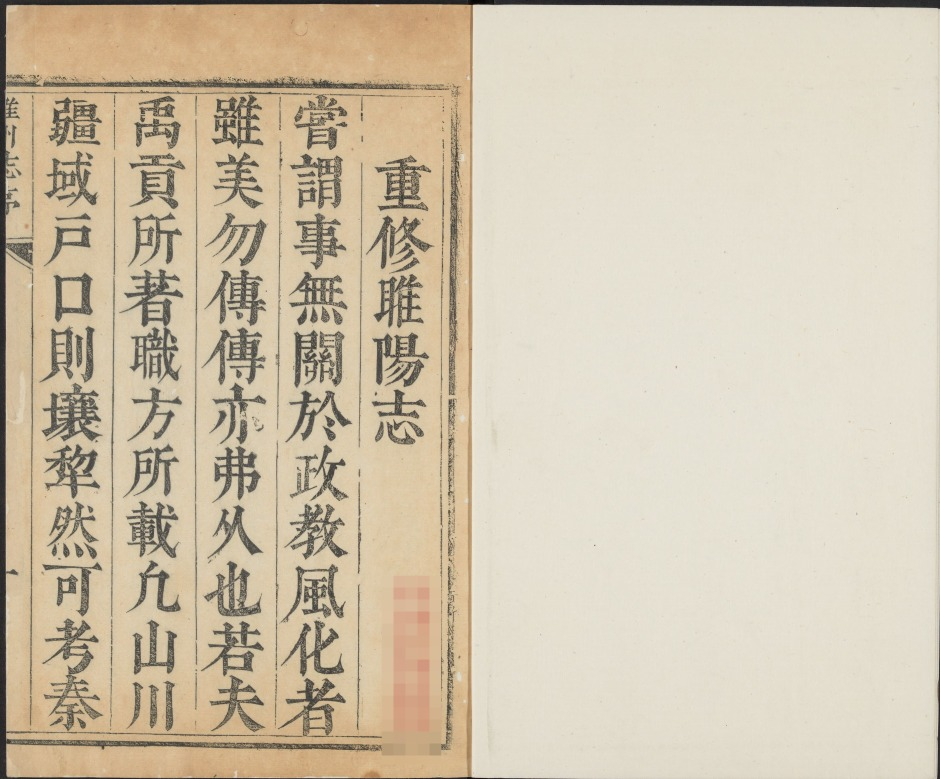 重修睢陽志
嘗謂事無關於政教風化者
雖美勿傳傳亦弗从也若夫
禹貢所著職方所載凢山川
疆域戸口則壤犂然可考秦
睢州志序
一